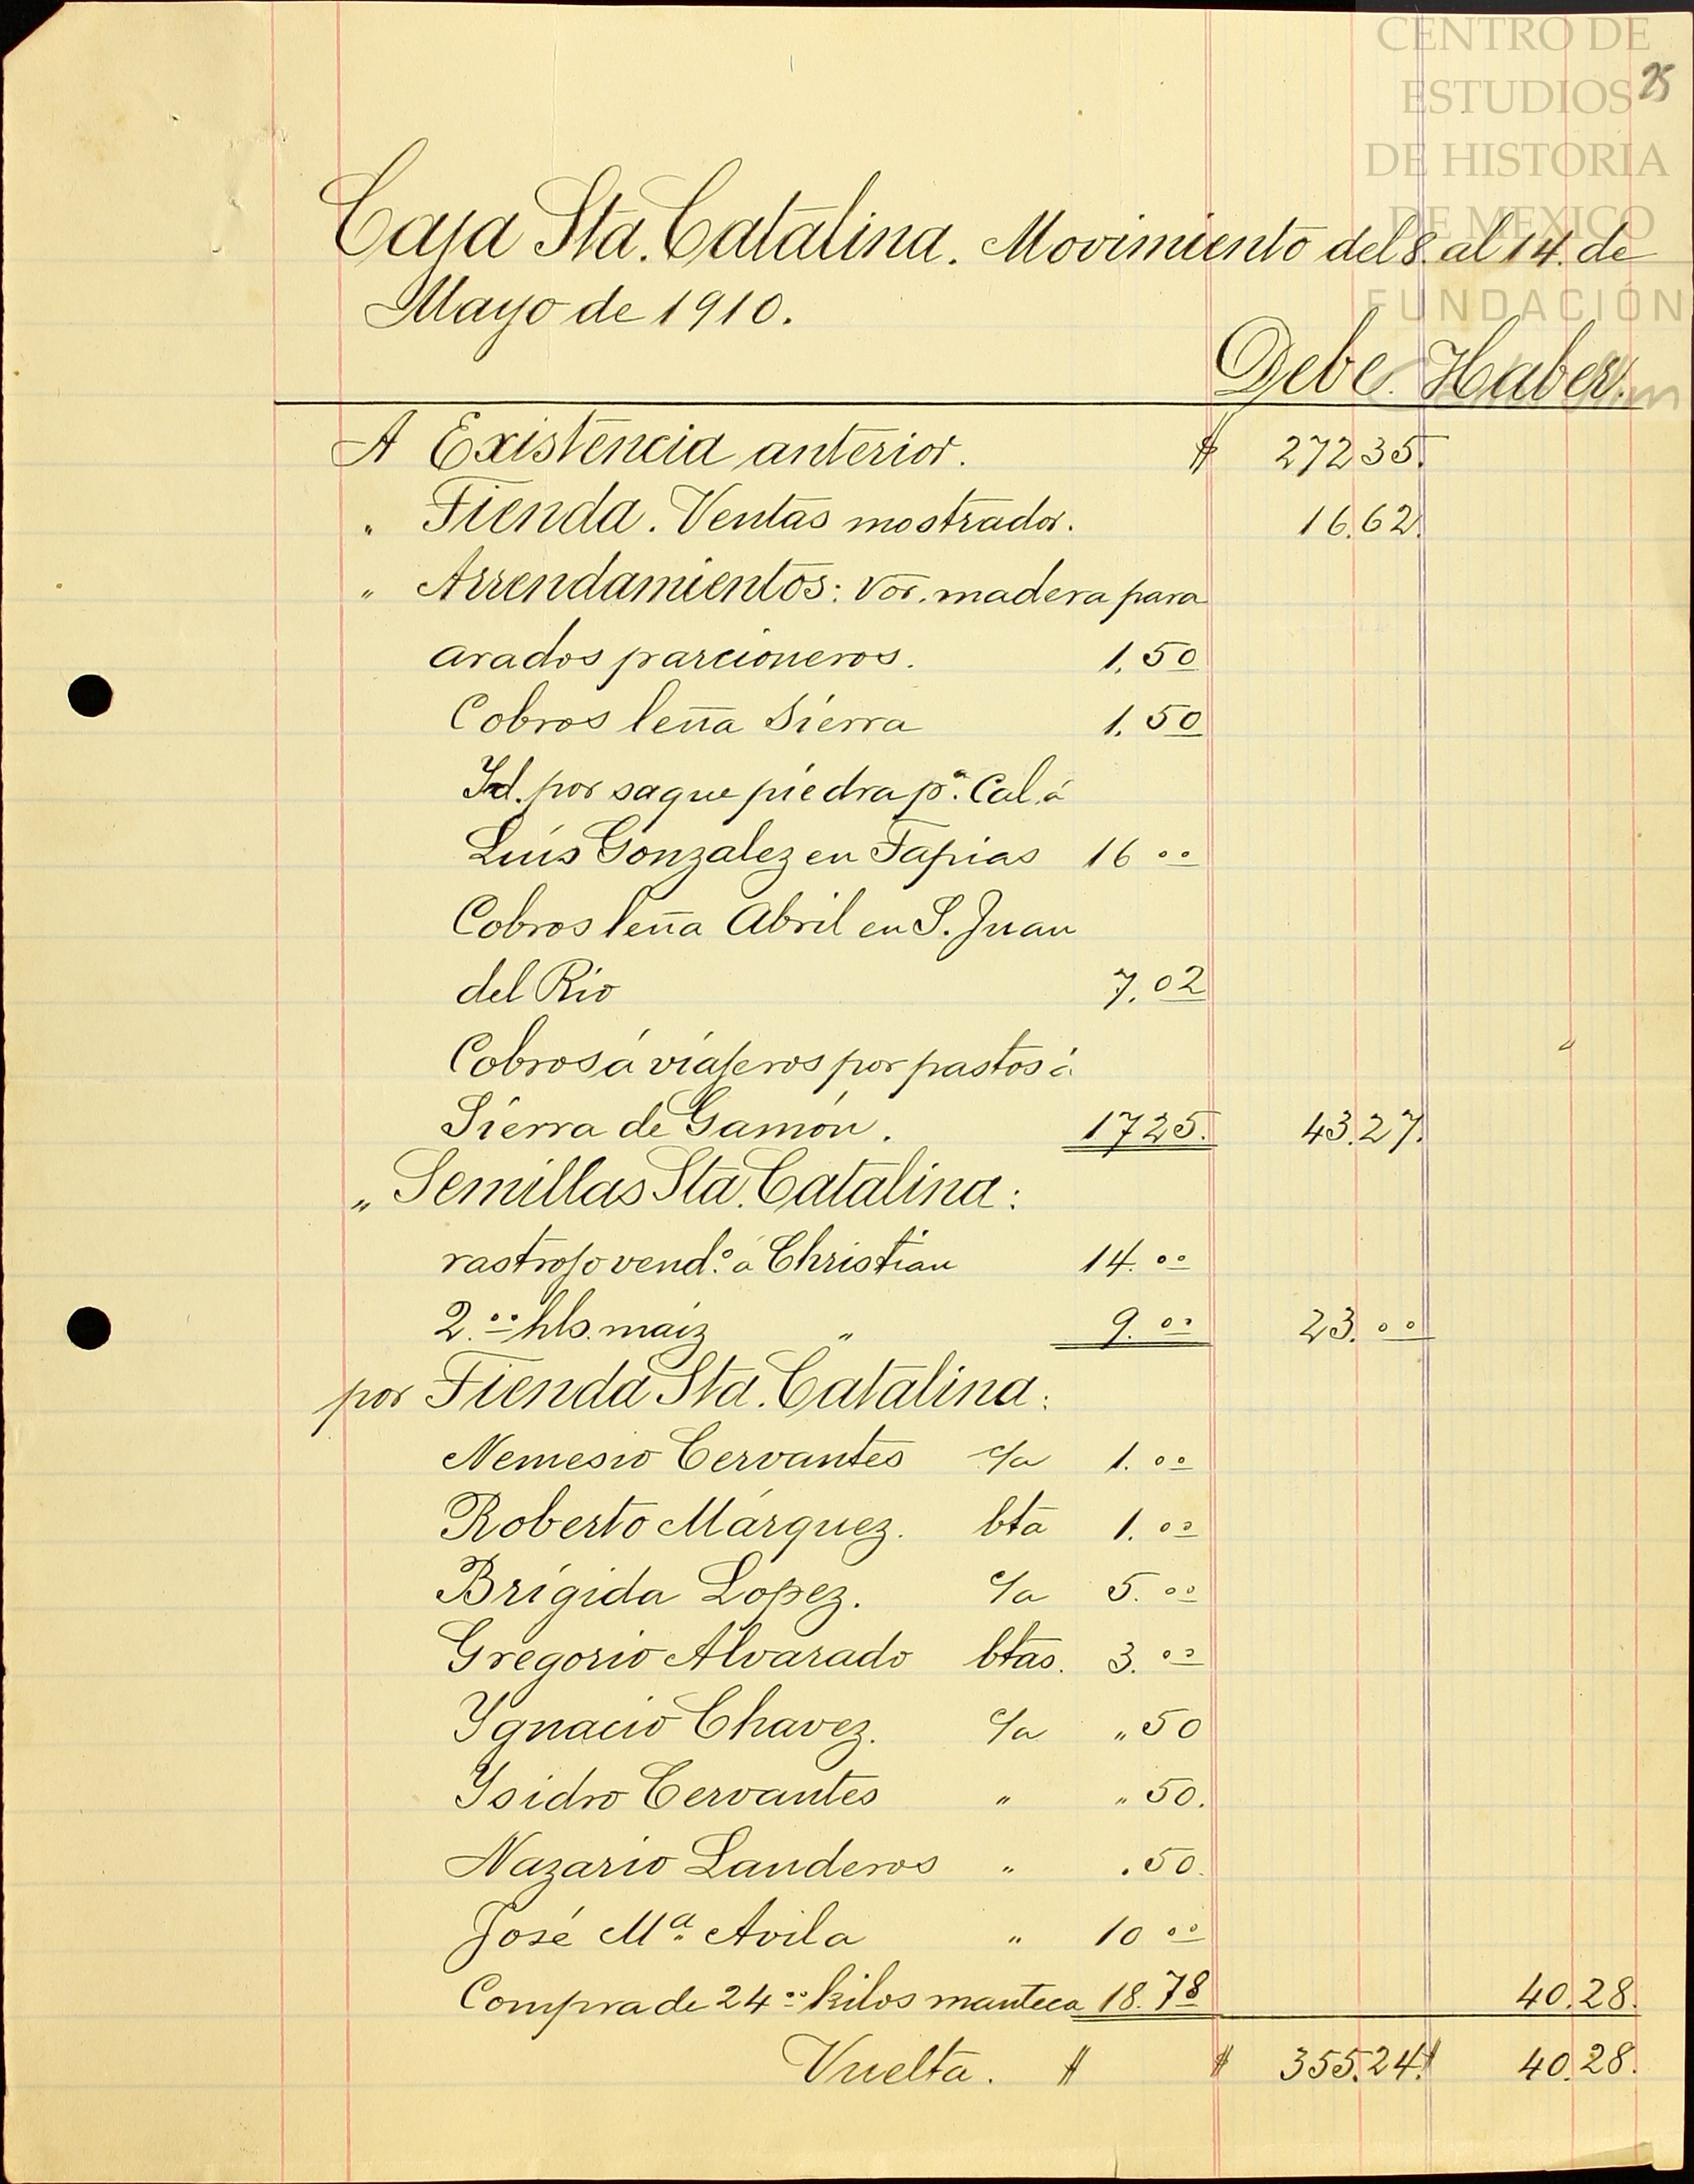 CENTRO DE
ESTUDIOS
DE HISTORIA
DE MEXICO
FUNDACIÓN
25
Caja Sta. Catalina. Movimiento del 8. al 14. de
Mayo de 1910.
Debe. Haber.
A Existencia anterior. $ 272 35.
" Tienda. Ventas mostrador. 16.62.
" Arrendamientos: Vor. madera para
arados parcioneros. 1.50
Cobros leña Sierra 1.50
Yd. por saque piedra pa. Cal. á
Luis Gonzalez en Tapias 16 00
Cobros leña Abril en S. Juan
del Rio 7.02
Cobros á viajeros por pastos á
Sierra de Gamón. 17 25. 43.27.
" Semillas Sta. Catalina:
rastrojo vendo. á Christian 14. 00
2.00 hls. maiz " 9. 00 23. 00
por Tienda Sta. Catalina:
Nemesio Cervantes c/a 1. 00
Roberto Márquez. bta 1. 00
Brígida Lopez. c/a 5. 00
Gregorio Alvarado btas. 3. 00
Ygnacio Chavez. c/a " 50
Ysidro Cervantes " " 50.
Nazario Landeros " . 50.
José Ma. Avila " 10 00
Compra de 24 00 kilos manteca 18.78 40.28.
Vuelta. $ $ 355.24. $ 40.28.